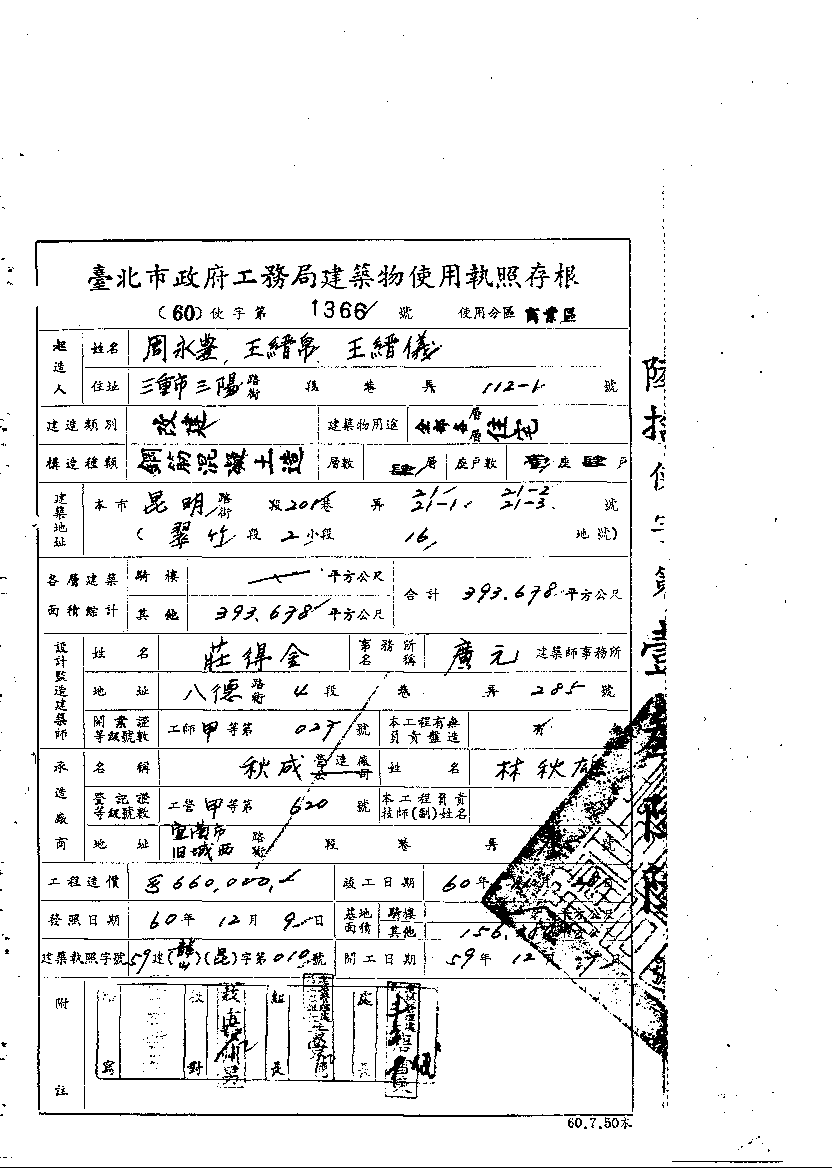 臺北市政府工務局建築物使用執照存根
(60)使字第 1366 號 使用分區 商業區
起造人 姓名 周永豊、王縉帛、王縉儀
住址 三重市三陽路街 段 巷 弄 112-1 號
建造類別 改建 建築物用途 全部各層層住宅
構造種類 鋼筋混凝土造 層數 肆層 座戶數 壹座肆戶
建築地址 本市 昆明路街 段201巷 弄 21, 21-1, 21-2 21-3. 號
(翠竹段2小段 16 地號)
各層建築面積綜計 騎樓 平方公尺 合計 393.678 平方公尺
其他 393.678 平方公尺
設計監造建築師 姓名 莊得金 事務所名稱 廣元 建築師事務所
地址 八德路街 4段 巷 弄 285 號
開業證等級號數 工師甲等第 027 號 本工程有無負責監造 有
承造廠商 名稱 秋成營造廠公司 姓名 林秋
登記證等級號數 工營甲等第 620 號 本工程負責技師(副)姓名
地址 宜蘭市旧城西路街 段 巷 弄 號
工程造價 660,000 竣工日期 60年
發照日期 60年12月9日 基地面積 騎樓 平方公尺
其他 156.
建築執照字號 59建( )(昆)字第010號 開工日期 59年12月
附註
寫 校對 組長 處長
60.7.50本